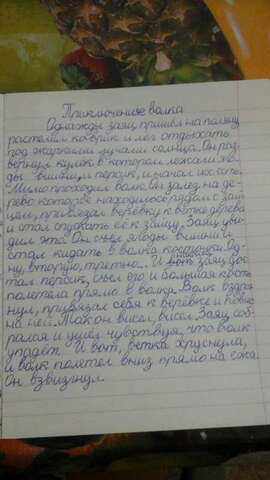 Приключение волка
Однажды заяц пришёл на поляну
растелил коврик и лёг отдыхать
под жаркими лучами солнца. Он раз-
вернул кулёк в котором лежали яго-
ды вишни и персик, и начал их есть.
Мимо проходил волк. Он залез на де-
рево которое находилось рядом с зай-
цем, привязал верёвку к ветке дерева
и стал спускать её к зайцу. Заяц уви-
дил это. Он съел ягоды вишни и
стал кидать в волка косточки. Од-
ну, вторую, третью... И вот заяц дос-
тал персик, съел его и большая кость
полетела прямо в волка. Волк вздрог-
нул, привязал себя к верёвке и повис
на ней. Так он висел, висел. Заяц соб-
рался и ушёл чувствуя, что волк
упадёт. И вот, ветка хрустнула,
и волк полетел вниз прямо на ежа.
Он взвизгнул.